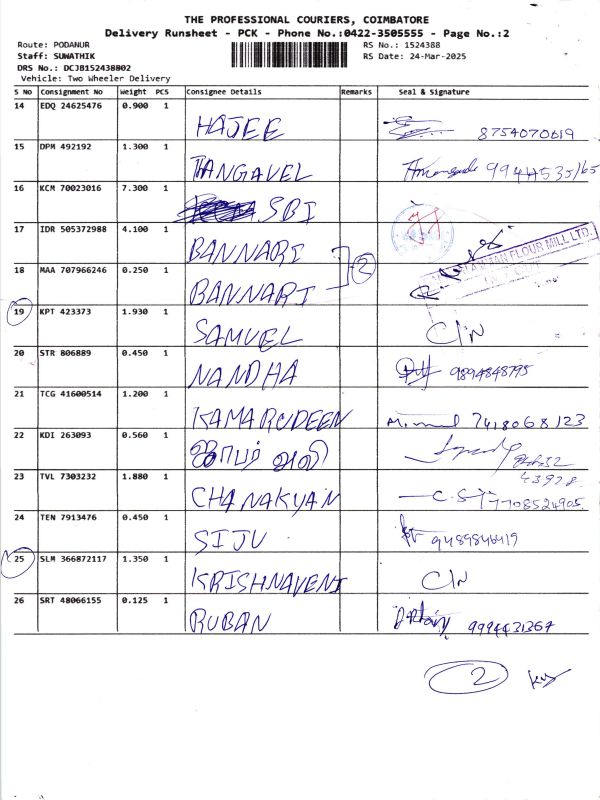 THE PROFESSIONAL COURIERS, COIMBATORE
Delivery Runsheet - PCK - Phone No.:0422-3505555 - Page No.:2
Route: PODANUR RS No.: 1524388
Staff: SUWATHIK RS Date: 24-Mar-2025
DRS No.: DCJB152438802
Vehicle: Two Wheeler Delivery
S No Consignment No Weight PCS Consignee Details Remarks Seal & Signature
14 EDQ 24625476 0.900 1 HAJEE 8754070619
15 DPM 492192 1.300 1 THANGAVEL
16 KCM 70023016 7.300 1 SBI
17 IDR 505372988 4.100 1 BANNARI
2
18 MAA 707966246 0.250 1 BANNARI
FLOUR MILL LTD.
19 KPT 423373 1.930 1 SAMUEL C/N
20 STR 806889 0.450 1 NANDHA 9894848795
21 TCG 41600514 1.200 1 KAMARUDEEN 7418068123
22 KDI 263093 0.560 1
43978
23 TVL 7303232 1.880 1 CHANAKYAN 7708524905
24 TEN 7913476 0.450 1 SIJU 9489846419
25 SLM 366872117 1.350 1 KRISHNAVENI C/N
26 SRT 48066155 0.125 1 RUBAN 9994431364
2